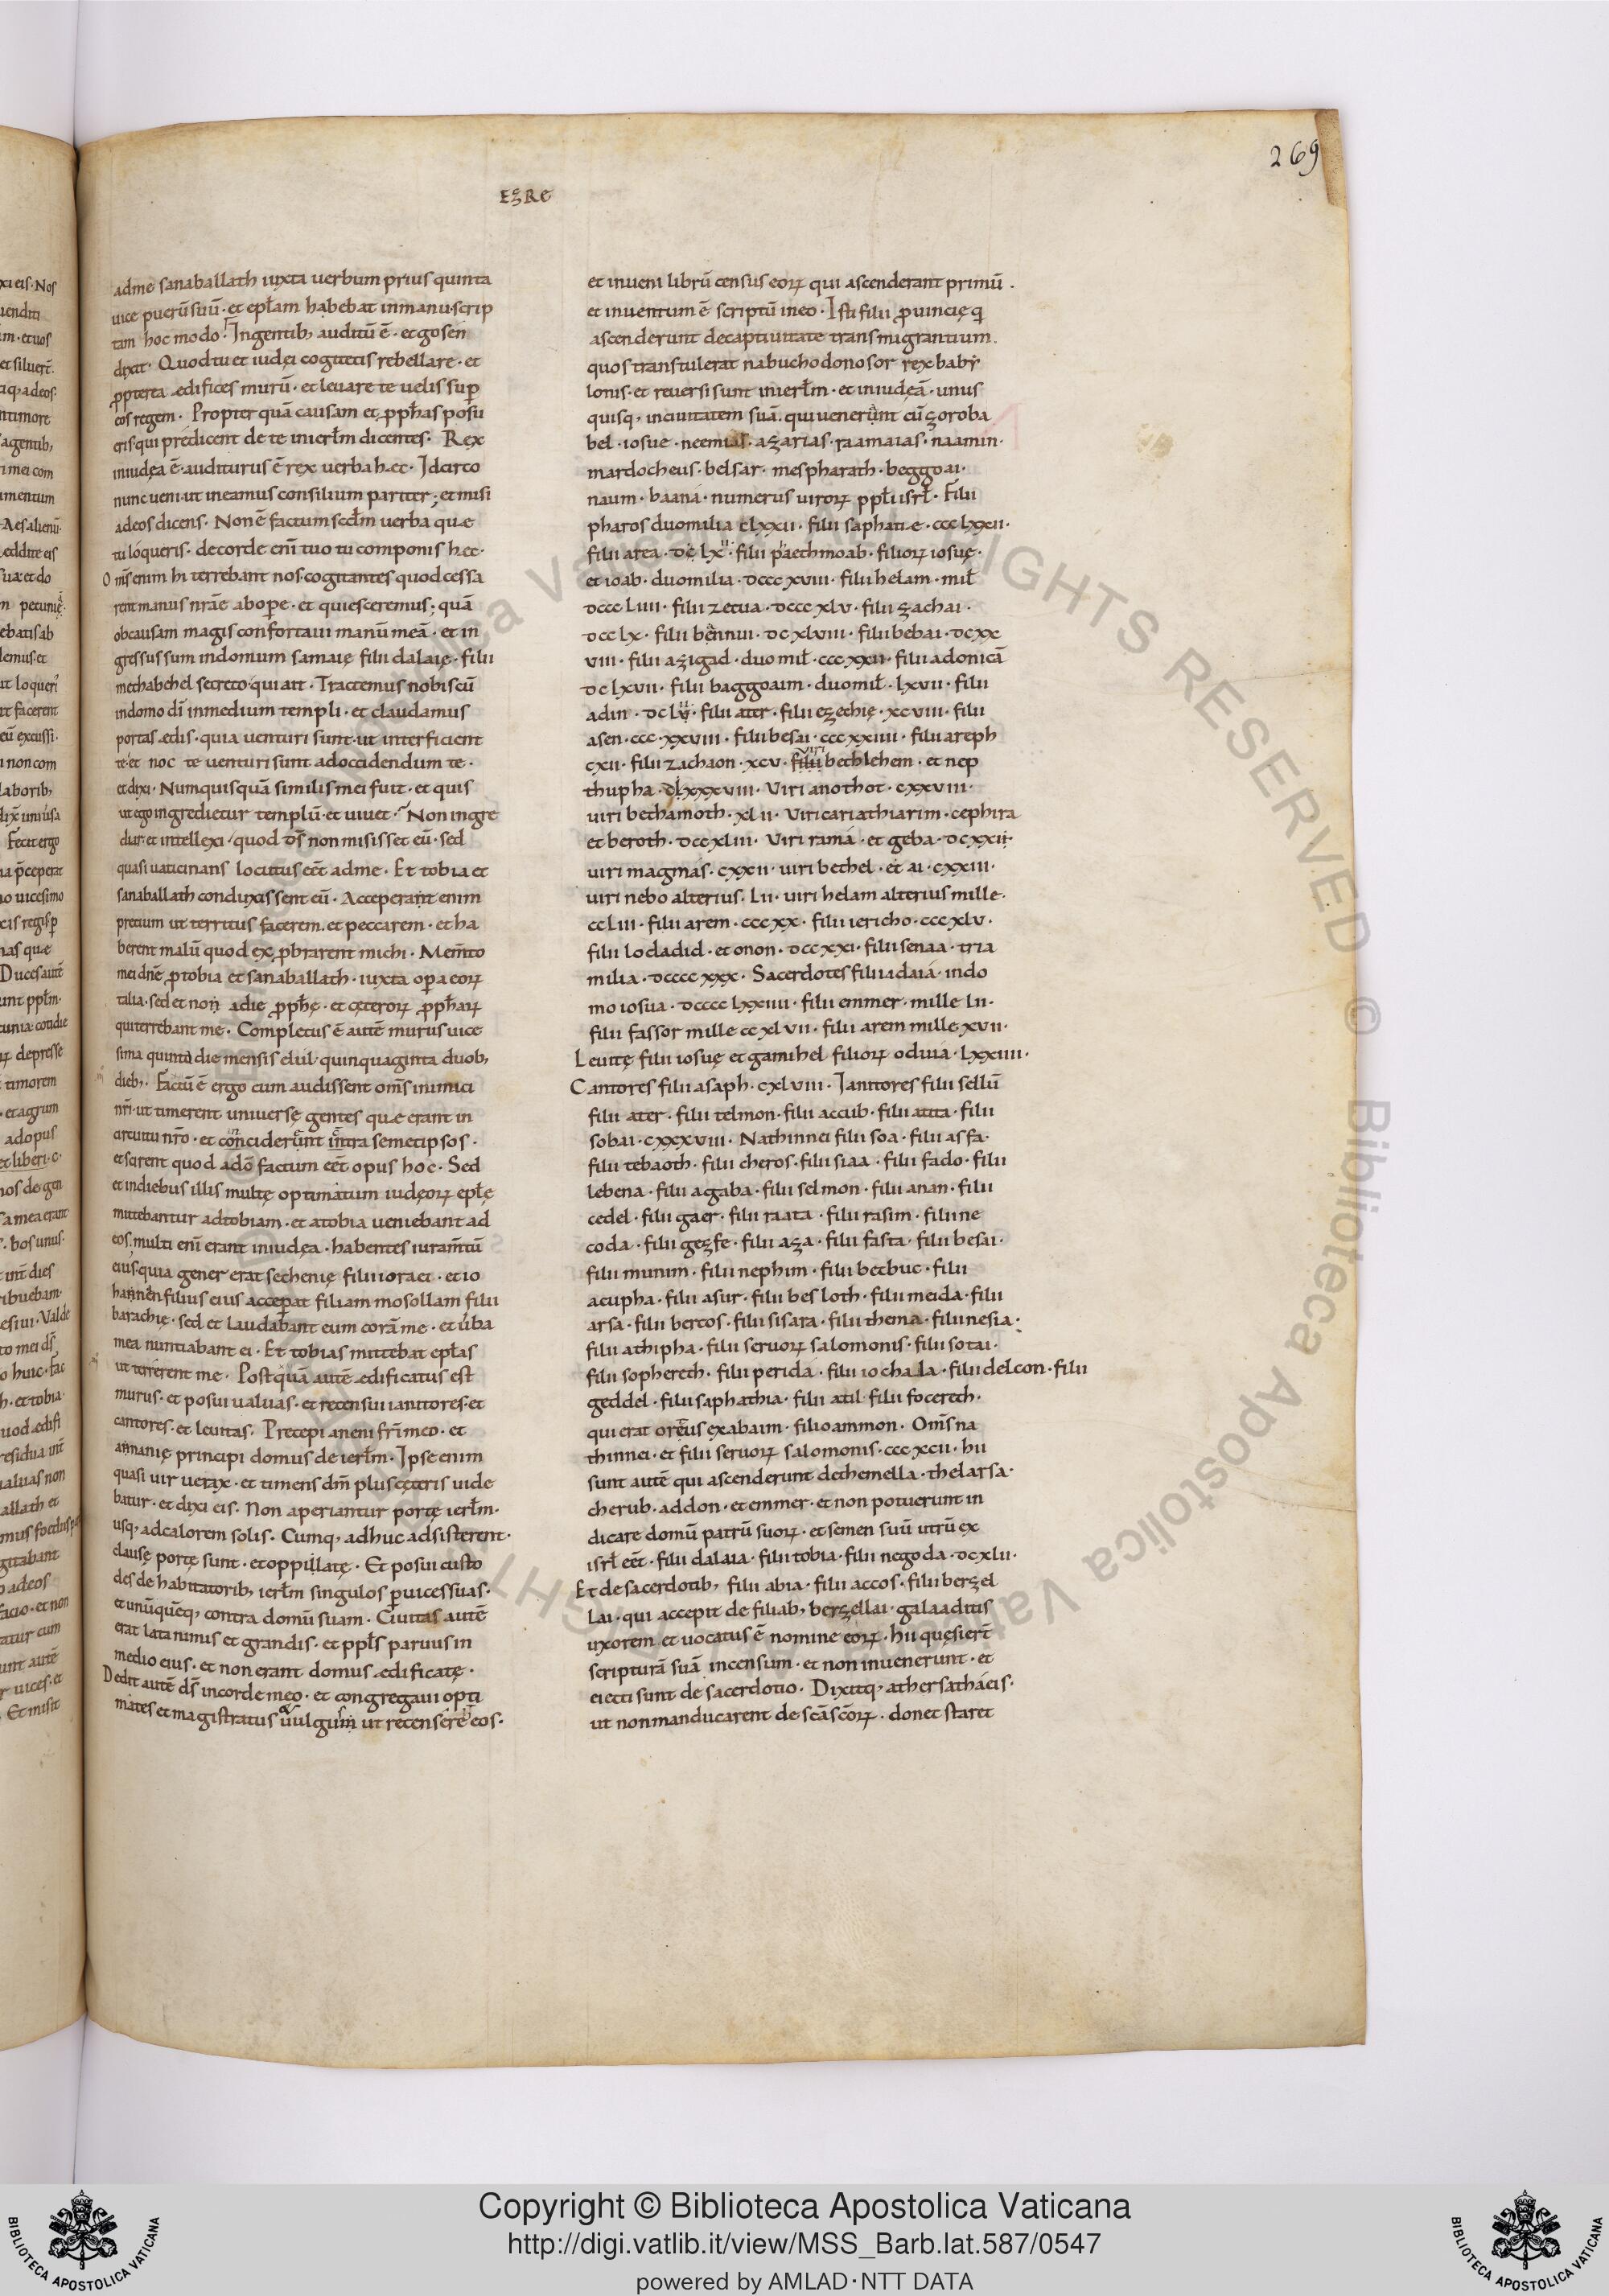 269
EzRE
adme sanaballath iuxta uerbum prius quinta
uice puerū suū · et ep̄lam habebat inmanu scrip
tam hoc modo · Ingentib; auditū ē · et gosem
dixit · Quod tu et iudęi cogitetis rebellare · et
ꝓpterea ædifices murū · et leuare te uelis sup̄
eos regem · Propter quā causam et ꝓph̄as posu
eris qui prędicent de te inierl̄m dicentes · Rex
iniudęa ē · auditurus ē rex uerba hæc · Idcirco
nunc ueni ut ineamus consilium pariter ; et misi
adeos dicens · Non ē factum scd̄m uerba quæ
tu lóqueris · decorde eni̅ tuo tu componis hæc ·
Om̄s enim hi terrebant nos · cogitantes quod cessa
rent manus nr̄ae abopere · et quiesceremus ; quā
obcausam magis confortaui manū meā · et in
gressus sum indomum samaię filii dalaię · filii
methabehel secreto · qui ait · Tractemus nobiscū
indomo dī inmedium templi · et claudamus
portas ædis · quia uenturi sunt · ut interficient
te · et noc te uenturi sunt adoccidendum te ·
et dixi · Numquisquā similis mei fuit · et quis
ut ego ingredietur templū · et uiuet · Non ingre
diar · et intellexi · quod ds̄ non misisset eū · sed
quasi uaticinans locutus eēt adme · Et tobia et
sanaballath conduxissent eū · Acceperant enim
precium ut territus facerem · et peccarem · et ha
berent malū quod exꝓbrarent michi · Mem̄to
mei dn̄e ꝓ tobia et sanaballath · iuxta opera eoꝝ
talia · sed et non adie ꝓph̄ę · et cęteroꝝ ꝓph̄aꝝ
qui terrebant me · Completus ē autē murus uice
sima quinta die mensis elul · quinquaginta duob;
dieb; · Factū ē ergo cum audissent om̄s inimici
nr̄i · ut timerent uniuersę gentes quæ erant in
circuitu nr̄o · et conciderunt intra semetipsos ·
et scirent quod adō factum eēt opus hoc · Sed
et indiebus illis multę optimatum iudęoꝝ ep̄lę
mittebantur adtobiam · et atobia ueniebant ad
eos · multi eni̅ erant iniudęa · habentes iuram̄tū
eius · quia gener erat sechenię filii ioraei · et io
hannen filius eius acceperat filiam mosollam filii
barachię · sed et laudabant eum corā me · et uerba
mea nuntiabant ei · Et tobias mittebat ep̄las
ut terrerent me · Postquā autē ædificatus est
murus · et posui ualuas · et recensui ianitores · et
cantores · et leuitas · Precepi aneni fr̄i meo · et
annanię principi domus de ierl̄m · Ipse enim
quasi uir uerax · et timens dm̄ plus cęteris uide
batur · et dixi eis · Non aperiantur portę ierl̄m ·
usq; adcalorem solis · Cumq; adhuc adsisterent ·
clausę portę sunt · et oppilatę · Et posui custo
des de habitatorib; ierl̄m singulos ꝑ uices suas ·
et unūquēq; contra domū suam · Ciuitas autē
erat lata nimis et grandis · et ppl̄s paruus in
medio eius · et non erant domus ædificatę ·
Dedit autē ds̄ incorde meo · et congregaui opti
mates et magistratus uulgum ut recensere eos ·
et inueni librū census eoꝝ qui ascenderant primū ·
et inuentum ē scriptū ineo · Isti filii ꝓuincię qi
ascenderunt decaptiuitate transmigrantium ·
quos transtulerat nabuchodonosor rex baby
lonis · et reuersi sunt inierl̄m · et iniudęā · unus
quisq; inciuitatem suā · qui uenerunt cū zoroba
bel · iosue · neemias · azarias · raamaias · naamin ·
mardocheus · belsar · mespharath · beggoai ·
naum · baana · numerus uiroꝝ ppl̄i isrl̄ · Filii
pharos duomilia clxxii · filii saphatiæ · ccclxxii ·
filii area · dclii · filii paethmoab · filioꝝ iosuę ·
et ioab · duomilia · dcccxviii · filii helam · mil̄
dccc liiii · filii zetua · dcccxlv · filii zachai ·
dcclx · filii bennui · dcxlviii · filii bebai · dcxx
viii · filii azigad · duomil̄ · cccxxii · filii adonicā
dclxvii · filii baggoaim · duomil̄ · lxvii · filii
adin · dclv · filii ater · filii ezechię · xcviii · filii
asen · ccc · xxviii · filii besai · cccxxiiii · filii areph
cxii · filii zachaon · xcv · filii bethlehem · et nep
viri
thupha · clxxxviii · Viri anothot · cxxviii ·
uiri bethamoth · xlii · Viri cariathiarim · cephira
et beroth · dccxliii · Viri rama · et geba · dcxxii ·
uiri magmas · cxxii · uiri bethel · et ai · cxxiii ·
uiri nebo alterius · lii · uiri helam alterius mille ·
ccliii · filii arem · cccxx · filii iericho · cccxlv ·
filii lodadid · et onon · dccxxi · filii senaa · tria
milia · dccccxxx · Sacerdotes filii idaia · indo
mo iosua · dcccclxxiiii · filii emmer · mille lii ·
filii fassor mille ccxlvii · filii arem mille xvii ·
Leuitę filii iosuę et gamihel filioꝝ oduia · lxxiiii ·
Cantores filii asaph · cxlviii · Ianitores filii sellū
filii ater · filii telmon · filii accub · filii atita · filii
sobai · cxxxviii · Nathinnei filii soa · filii asfa ·
filii tebaoth · filii cheros · filii siaa · filii fado · filii
lebena · filii agaba · filii selmon · filii anan · filii
cedel · filii gaer · filii raata · filii rasim · filii ne
coda · filii gezfe · filii aza · filii fasta · filii besai ·
filii munim · filii nephim · filii becbuc · filii
acupha · filii asur · filii besloth · filii meida · filii
arsa · filii bercos · filii sisara · filii thema · filii nesia ·
filii athipha · filii seruoꝝ salomonis · filii sotai ·
filii sophereth · filii perida · filii iochala · filii delcon · filii
geddel · filii saphathia · filii atil · filii focereth ·
qui erat ortus exabaim · filio ammon · Om̄s na
thinnei · et filii seruoꝝ salomonis · cccxcii · hii
sunt autē qui ascenderunt dethemella · thelarsa ·
cherub · addon · et emmer · et non potuerunt in
dicare domū patrū suoꝝ · et semen suū utrū ex
isrl̄ eēt · filii dalaia · filii tobia · filii negoda · dcxlii ·
Et de sacerdotib; filii abia · filii accos · filii berzel
lai · qui accepit de filiab; berzellai · galaaditis
uxorem · et uocatus ē nomine eoꝝ · hii quęsiert̄
scripturā suā incensum · et non inuenerunt · et
eiecti sunt de sacerdotio · Dixitq; athersathacis ·
ut non manducarent de scā scōꝝ · donec staret
Copyright © Biblioteca Apostolica Vaticana
http://digi.vatlib.it/view/MSS_Barb.lat.587/0547
powered by AMLAD·NTT DATA
BIBLIOTECA APOSTOLICA VATICANA
BIBLIOTECA APOSTOLICA VATICANA